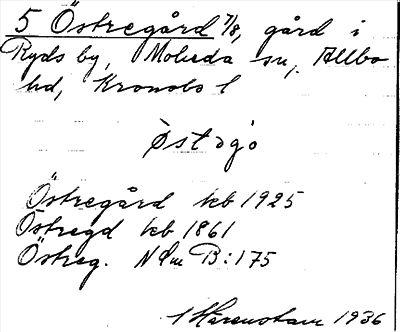 5 Östregård 7/8, gård i
Ryds by, Moheda sn, Allbo
hd, Kronobs l
östəgo
Östregård kb 1925
Östregd kb 1861
Östreg. Ndm B:175
Härenstam 1936